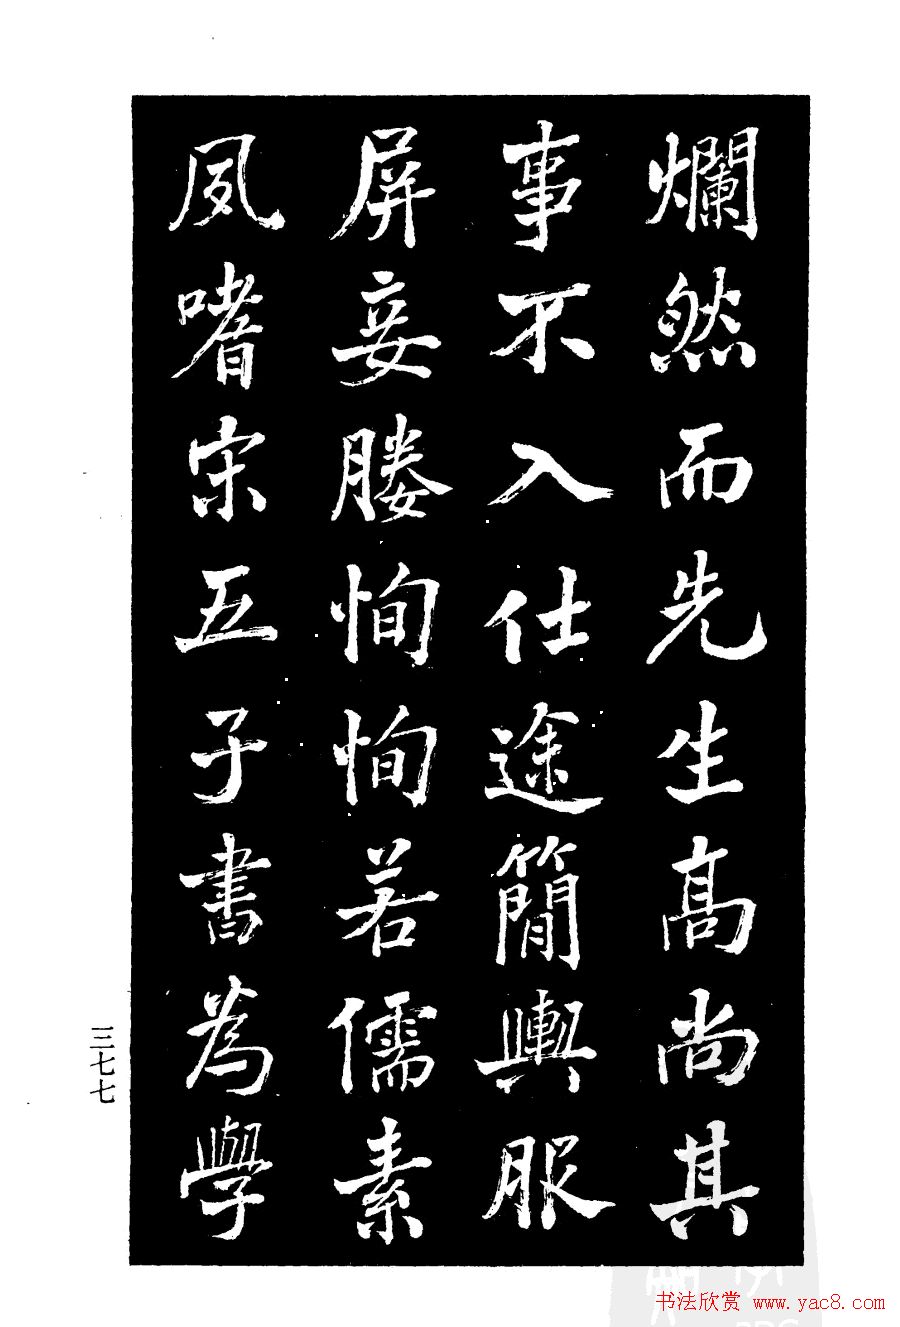 爛然而先生高尚其
事不入仕途簡輿服
屏妾媵恂恂若儒素
夙嗜宋五子書為學
三七七
书法欣赏 www.yac8.com